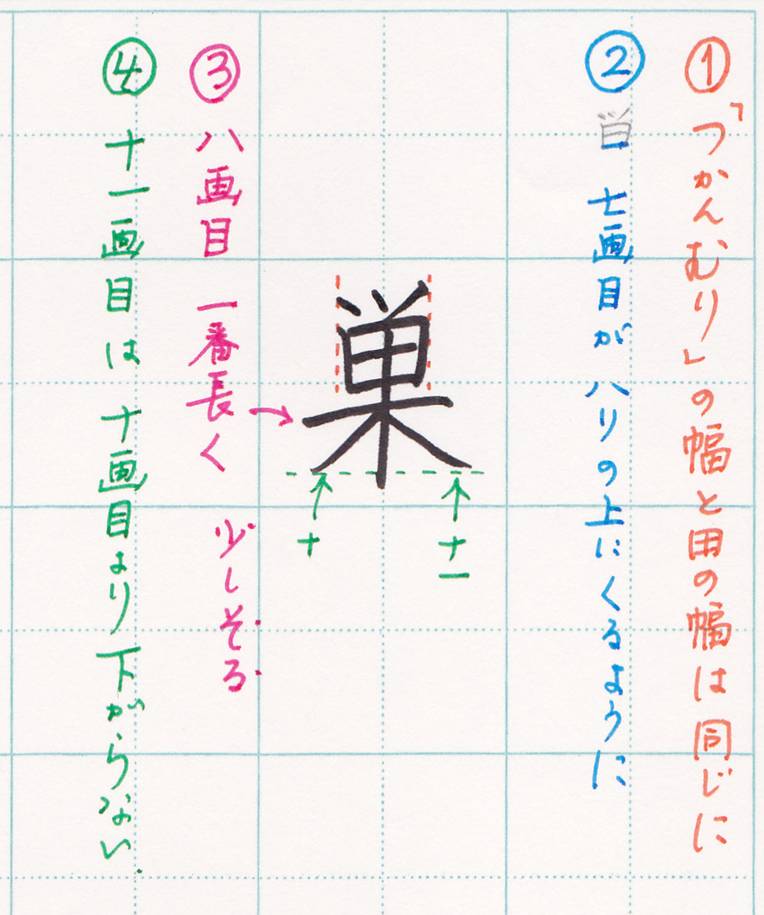 ①「つかんむり」の幅と田の幅は同じに
② 七画目がハリの上にくるように
巣
十一
十
③ 八画目 一番長く 少しそる
④ 十一画目は 十画目より 下がらない